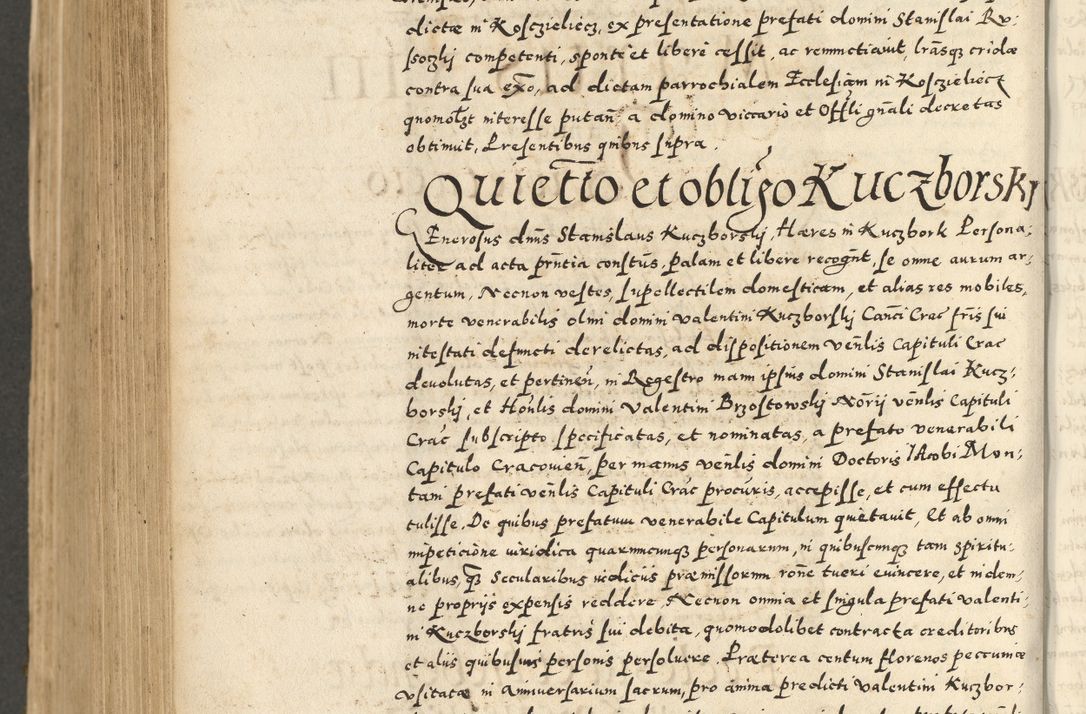 dictæ in Kosczieliecz, ex presentatione prefati domini Stanislai Ru-
soczkj competenti, sponte et libere cessit, ac renunctiavit, lrãsq; cridæ
contra sua exo, ad dictam parrochialem Ecclesiam in Kosczieliecz
quomolzt interesse putañ a domino viccario et Offli gñali decretas
obtinuit, Presentibus quibus supra.
Quietatio et obligo Kuczborskj
Generosus dñus Stanislaus Kuczborskj, Hæres in Kuczbork Persona-
liter ad acta prñtia constus, palam et libere recognt, se omne aurum ar-
gentum, Necnon vestes, supellectilem domesticam, et alias res mobiles,
morte venerabilis olim domini Valentini Kuczborskj Canci Crac fris sui
intestati defuncti derelictas, ad dispositionem venlis Capituli Crac
devolutas, et pertineñ, in Regestro manu ipsius domini Stanislai Kucz-
borskj, et Honlis domini Valentini Brzostowskj Norij venlis Capituli
Crac subscripto specificatas, et nominatas, a prefato venerabili
Capitulo Cracovieñ, per manus venlis domini Doctoris Jacobi Mon-
tani prefati venlis Capituli Crac procuris, accepisse, et cum effectu
tulisse, De quibus prefatum venerabile Capitulum quietavit, Et ab omni
impeticione iuridica quarumcunq; personarum, in quibuscunq; tam spiritu-
alibus, q; Secularibus iudiciis præmissorum rone tueri evincere, et indem-
ne propriis expensis reddere, Necnon omnia et singula prefati Valenti-
ni Kuczborskj fratris sui debita, quomodolibet contracta creditoribus
et aliis quibusvis personis persoluere, Præterea centum florenos peccuniæ
usitatæ in Anniversarium sacrum, pro anima predicti Valentini Kuczbor-